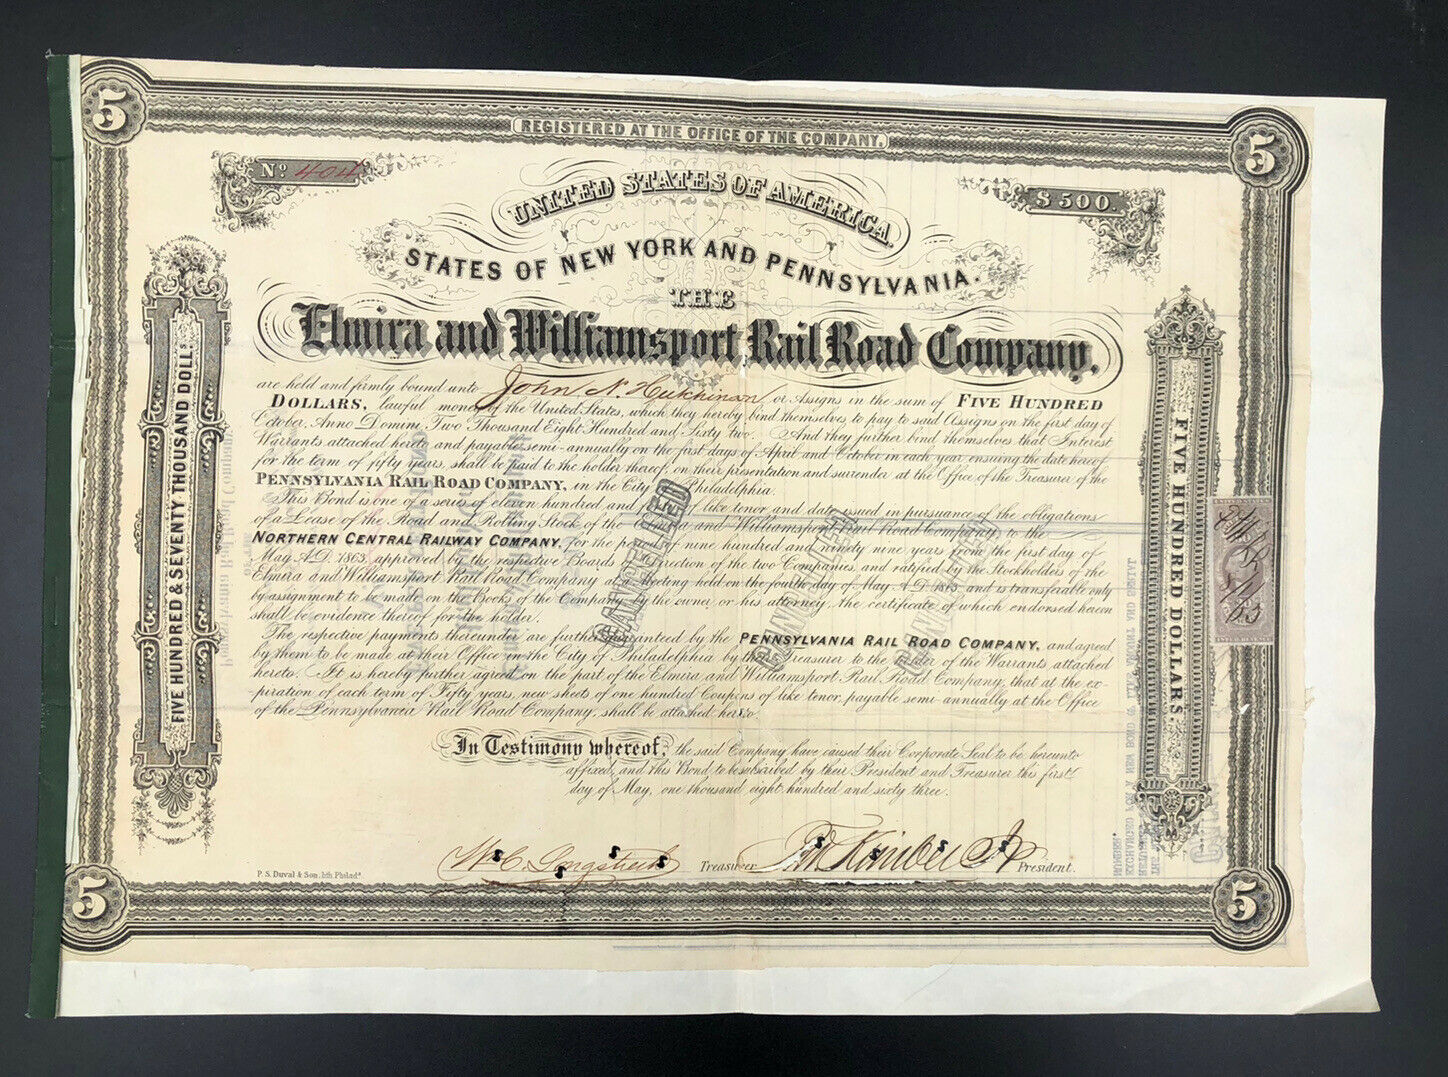 REGISTERED AT THE OFFICE OF THE COMPANY.
5
5
No. 404
$500.
UNITED STATES OF AMERICA.
STATES OF NEW YORK AND PENNSYLVANIA.
THE
Elmira and Williamsport Rail Road Company,
are held and firmly bound unto John N. Hutchinson or Assigns in the sum of FIVE HUNDRED
DOLLARS, lawful money of the United States, which they hereby bind themselves to pay to said Assigns on the first day of
October, Anno Domini, Two Thousand Eight Hundred and Sixty two. And they further bind themselves that Interest
Warrants attached hereto and payable semi-annually on the first days of April and October in each year ensuing the date hereof
for the term of fifty years, shall be paid to the holder thereof, on their presentation and surrender at the Office of the Treasurer of the
PENNSYLVANIA RAIL ROAD COMPANY, in the City Philadelphia.
This Bond is one of a series of eleven hundred and like tenor and date issued in pursuance of the obligations
of a Lease of the Road and Rolling Stock of the and Williamsport Rail Road Company to the
NORTHERN CENTRAL RAILWAY COMPANY, for the period of nine hundred and ninety nine years from the first day of
May A.D. 1863, approved by the respective Boards Direction of the two Companies, and ratified by the Stockholders of the
Elmira and Williamsport Rail Road Company at a meeting held on the fourth day of May A.D. 1863 and is transferable only
by assignment to be made on the Books of the Company by the owner or his attorney, the certificate of which endorsed hereon
shall be evidence thereof for the holder.
The respective payments thereunder are further guaranteed by the PENNSYLVANIA RAIL ROAD COMPANY, and agreed
by them to be made at their Office in the City of Philadelphia by the Treasurer to the holder of the Warrants attached
hereto. It is hereby further agreed on the part of the Elmira and Williamsport Rail Road Company, that at the ex-
piration of each term of Fifty years, new sheets of one hundred Coupons of like tenor, payable semi-annually at the Office
of the Pennsylvania Rail Road Company, shall be attached hereto.
In Testimony whereof, the said Company have caused their Corporate Seal to be hereunto
affixed, and this Bond to be subscribed by their President and Treasurer this first
day of May, one thousand eight hundred and sixty three.
W. C. Longstreth Treasurer T. Kimber Jr President.
P. S. Duval & Son, lith Philada.
FIVE HUNDRED & SEVENTY THOUSAND DOLLS.
FIVE HUNDRED DOLLARS.
CANCELLED
CANCELLED
CANCELLED
INTER. REVENUE
5
5